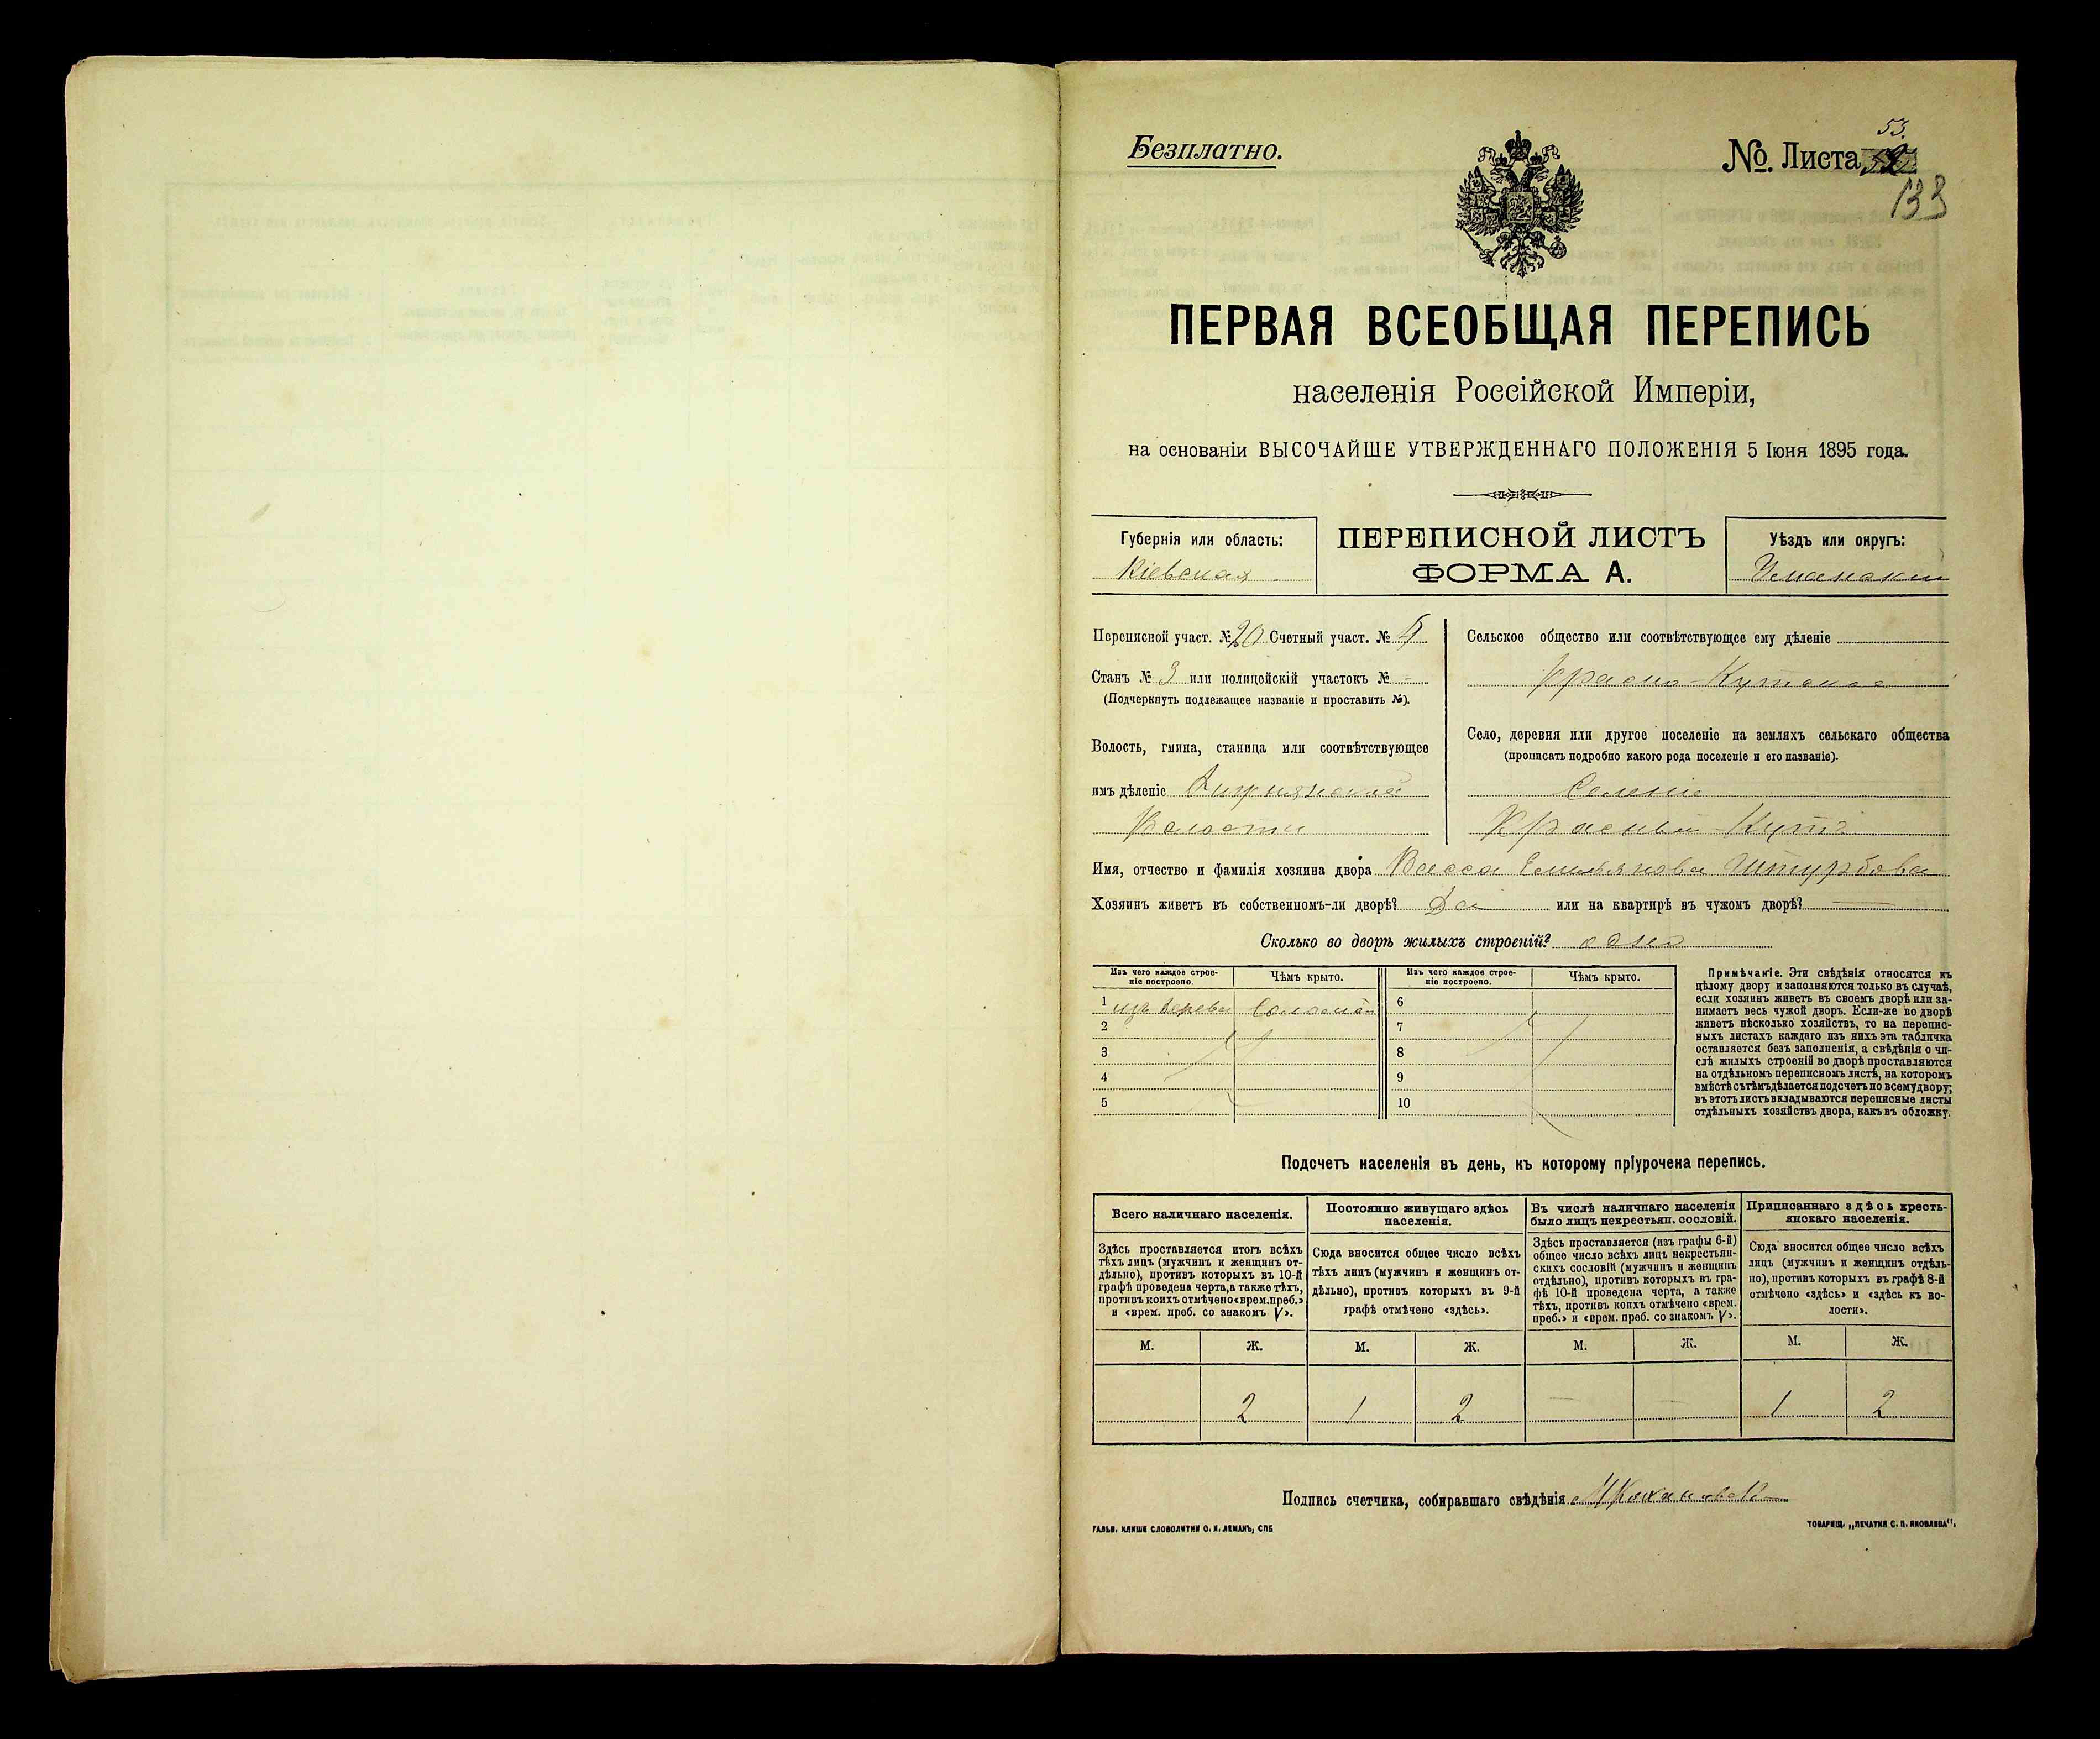 Безплатно.
№. Листа 53.
133
ПЕРВАЯ ВСЕОБЩАЯ ПЕРЕПИСЬ
населенія Россійской Имперіи,
на основаніи ВЫСОЧАЙШЕ УТВЕРЖДЕННАГО ПОЛОЖЕНІЯ 5 Іюня 1895 года.
Губернія или область:
Кіевская
ПЕРЕПИСНОЙ ЛИСТЪ
ФОРМА А.
Уѣздъ или округъ:
Уманскій
Переписной участ. № 20 Счетный участ. №
Станъ № 3 или полицейскій участокъ № -
(Подчеркнуть подлежащее названіе и проставить №).
Волость, гмина, станица или соотвѣтствующее
имъ дѣленіе
Волости
Сельское общество или соотвѣтствующее ему дѣленіе
Красно-Кутское
Село, деревня или другое поселеніе на земляхъ сельскаго общества
(прописать подробно какого рода поселеніе и его названіе).
Селеніе
Красный-Кутъ
Имя, отчество и фамилія хозяина двора Васса Емильянова Штурбова
Хозяинъ живетъ въ собственномъ-ли дворѣ? Да или на квартирѣ въ чужомъ дворѣ? —
Сколько во дворѣ жилыхъ строеній? одно
Изъ чего каждое строе-
ніе построено.
Чѣмъ крыто.
Изъ чего каждое строе-
ніе построено.
Чѣмъ крыто.
1 изъ дерева Соломой 6
2 7
3 8
4 9
5 10
Примѣчаніе. Эти свѣдѣнія относятся къ
цѣлому двору и заполняются только въ случаѣ,
если хозяинъ живетъ въ своемъ дворѣ или за-
нимаетъ весь чужой дворъ. Если-же во дворѣ
живетъ нѣсколько хозяйствъ, то на перепис-
ныхъ листахъ каждаго изъ нихъ эта табличка
оставляется безъ заполненія, а свѣдѣнія о чи-
слѣ жилыхъ строеній во дворѣ проставляются
на отдѣльномъ переписномъ листѣ, на которомъ
вмѣстѣ съ тѣмъ дѣлается подсчетъ по всему двору;
въ этотъ листъ вкладываются переписные листы
отдѣльныхъ хозяйствъ двора, какъ въ обложку.
Подсчетъ населенія въ день, къ которому пріурочена перепись.
Всего наличнаго населенія.
Здѣсь проставляется итогъ всѣхъ
тѣхъ лицъ (мужчинъ и женщинъ от-
дѣльно), противъ которыхъ въ 10-й
графѣ проведена черта, а также тѣхъ,
противъ коихъ отмѣчено «врем. преб.»
и «врем. преб. со знакомъ V».
Постоянно живущаго здѣсь
населенія.
Сюда вносится общее число всѣхъ
тѣхъ лицъ (мужчинъ и женщинъ от-
дѣльно), противъ которыхъ въ 9-й
графѣ отмѣчено «здѣсь».
Въ числѣ наличнаго населенія
было лицъ некрестьян. сословій.
Здѣсь проставляется (изъ графы 6-й)
общее число всѣхъ лицъ некрестьян-
скихъ сословій (мужчинъ и женщинъ
отдѣльно), противъ которыхъ въ гра-
фѣ 10-й проведена черта, а также
тѣхъ, противъ коихъ отмѣчено «врем.
преб.» и «врем. преб. со знакомъ V».
Приписаннаго здѣсь кресть-
янскаго населенія.
Сюда вносится общее число всѣхъ
лицъ (мужчинъ и женщинъ отдѣль-
но), противъ которыхъ въ графѣ 8-й
отмѣчено «здѣсь» и «здѣсь къ во-
лости».
М. Ж. М. Ж. М. Ж. М. Ж.
2 1 2 — — 1 2
Подпись счетчика, собиравшаго свѣдѣнія
ГАЛЬВ. КЛИШЕ СЛОВОЛИТНИ О. И. ЛЕМАНЪ, СПБ
ТОВАРИЩ. „ПЕЧАТНЯ С. П. ЯКОВЛЕВА".